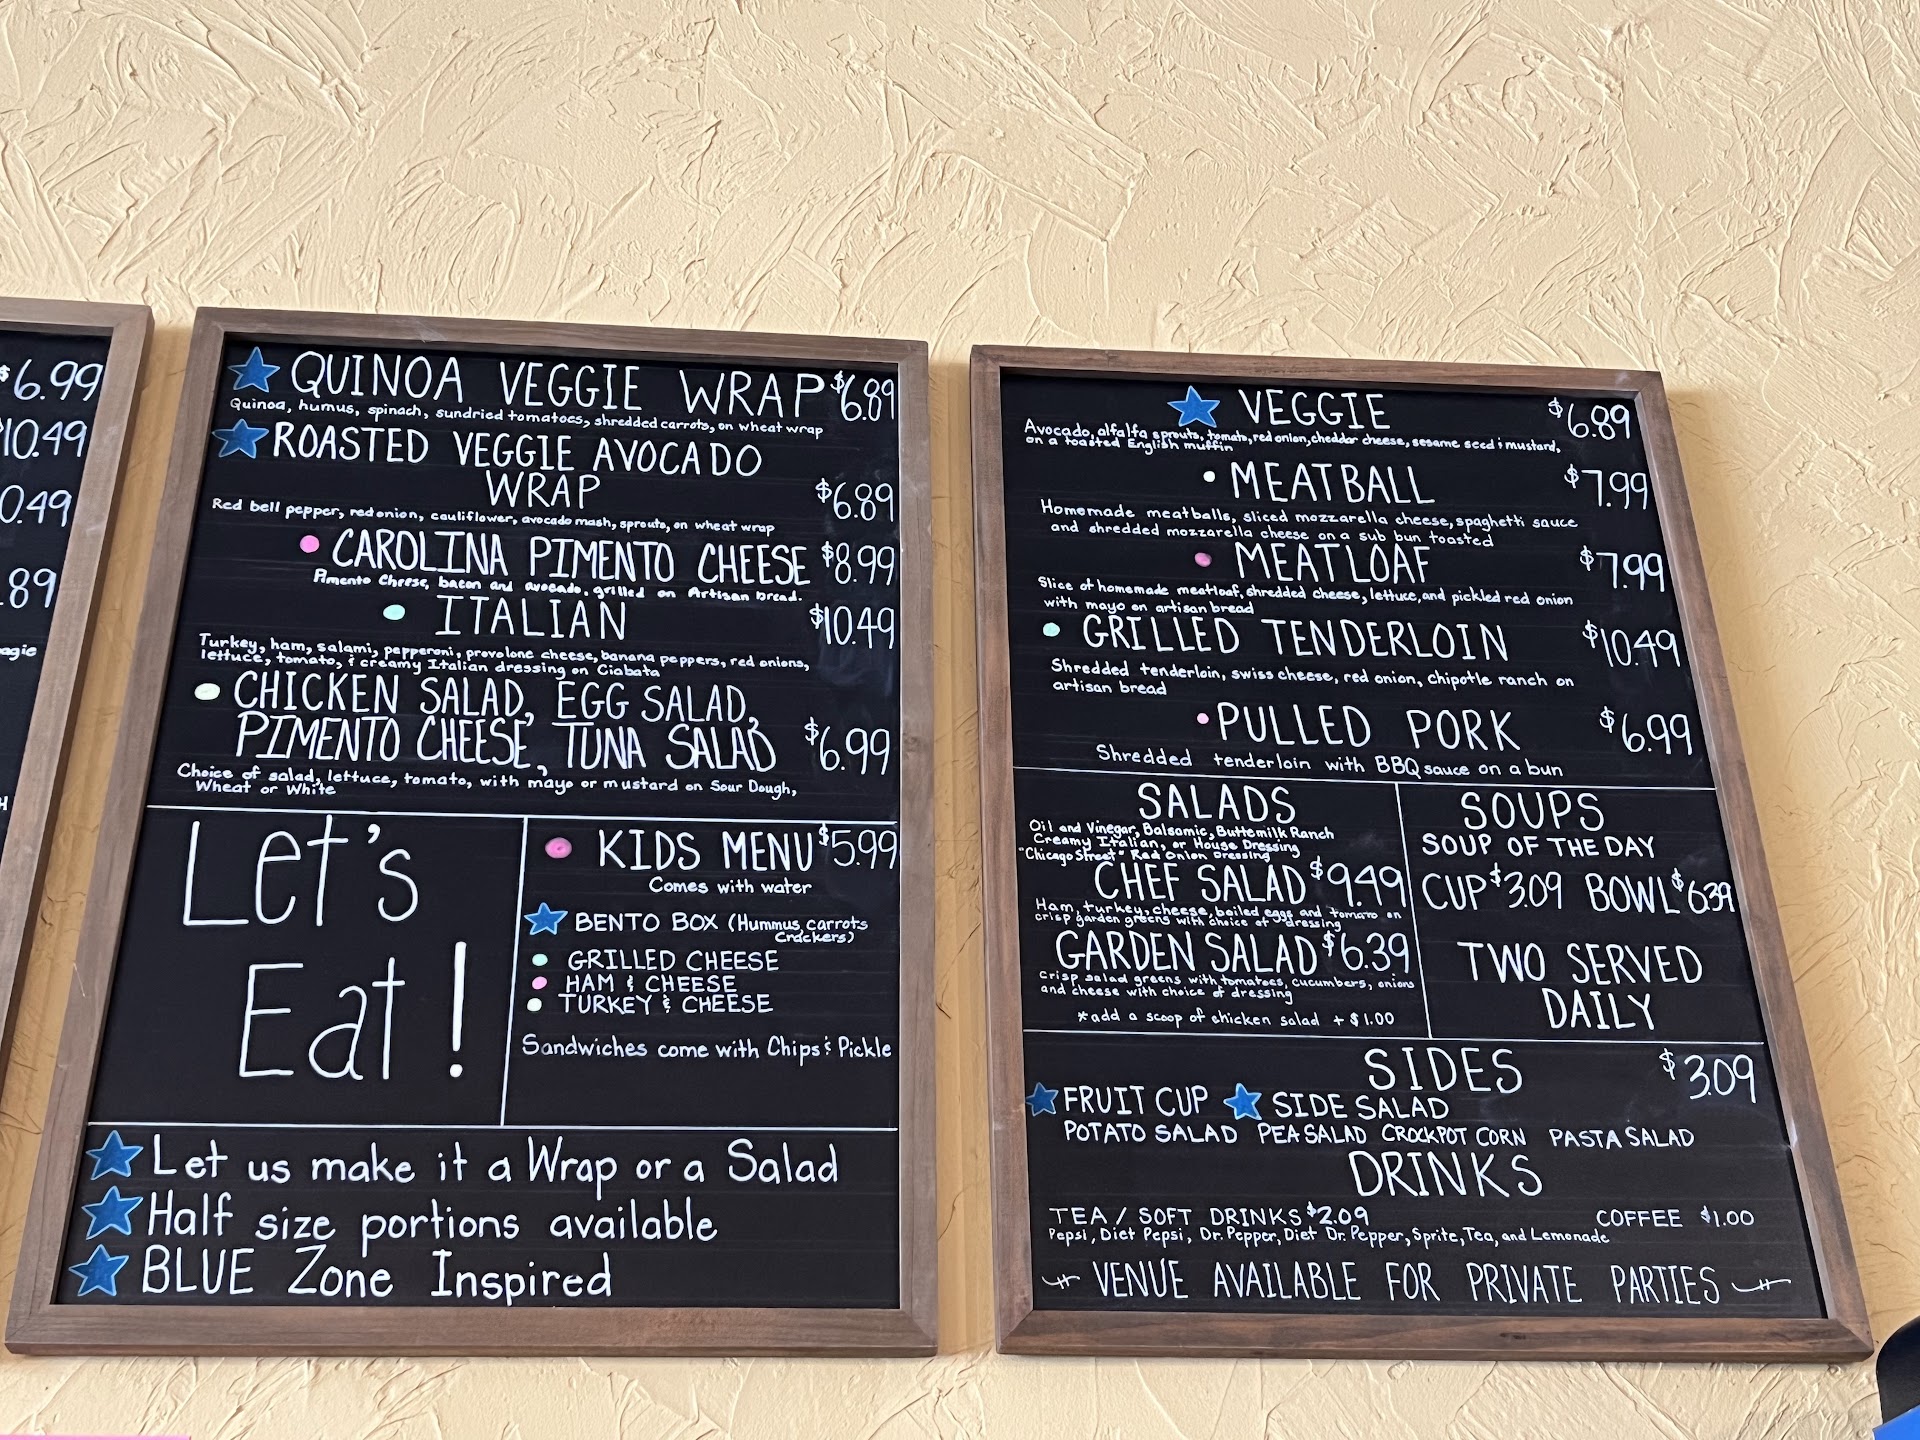 $6.99
10.49
0.49
.89
agie
H
QUINOA VEGGIE WRAP $6.89
Quinoa, humus, spinach, sundried tomatoes, shredded carrots, on wheat wrap
ROASTED VEGGIE AVOCADO
WRAP $6.89
Red bell pepper, red onion, cauliflower, avocado mash, sprouts, on wheat wrap
CAROLINA PIMENTO CHEESE $8.99
Pimento Cheese, bacon and avocado, grilled on Artisan bread.
ITALIAN $10.49
Turkey, ham, salami, pepperoni, provolone cheese, banana peppers, red onions,
lettuce, tomato, & creamy Italian dressing on Ciabata
CHICKEN SALAD, EGG SALAD,
PIMENTO CHEESE, TUNA SALAD $6.99
Choice of salad, lettuce, tomato, with mayo or mustard on Sour Dough,
Wheat or White
Let's
Eat!
KIDS MENU $5.99
Comes with water
BENTO BOX (Hummus, carrots
Crackers)
GRILLED CHEESE
HAM & CHEESE
TURKEY & CHEESE
Sandwiches come with Chips & Pickle
Let us make it a Wrap or a Salad
Half size portions available
BLUE Zone Inspired
VEGGIE $6.89
Avocado, alfalfa sprouts, tomato, red onion, cheddar cheese, sesame seed & mustard,
on a toasted English muffin
MEATBALL $7.99
Homemade meatballs, sliced mozzarella cheese, spaghetti sauce
and shredded mozzarella cheese on a sub bun toasted
MEATLOAF $7.99
Slice of homemade meatloaf, shredded cheese, lettuce, and pickled red onion
with mayo on artisan bread
GRILLED TENDERLOIN $10.49
Shredded tenderloin, swiss cheese, red onion, chipotle ranch on
artisan bread
PULLED PORK $6.99
Shredded tenderloin with BBQ sauce on a bun
SALADS
Oil and Vinegar, Balsamic, Buttemilk Ranch
Creamy Italian, or House Dressing
"Chicago Street" Red Onion Dressing
CHEF SALAD $9.49
Ham, turkey, cheese, boiled eggs and tomato on
crisp garden greens with choice of dressing
GARDEN SALAD $6.39
Crisp salad greens with tomatoes, cucumbers, onions
and cheese with choice of dressing
*add a scoop of chicken salad + $1.00
SOUPS
SOUP OF THE DAY
CUP $3.09 BOWL $6.39
TWO SERVED
DAILY
SIDES $3.09
FRUIT CUP SIDE SALAD
POTATO SALAD PEA SALAD CROCKPOT CORN PASTA SALAD
DRINKS
TEA / SOFT DRINKS $2.09 COFFEE $1.00
Pepsi, Diet Pepsi, Dr. Pepper, Diet Dr. Pepper, Sprite, Tea, and Lemonade
VENUE AVAILABLE FOR PRIVATE PARTIES